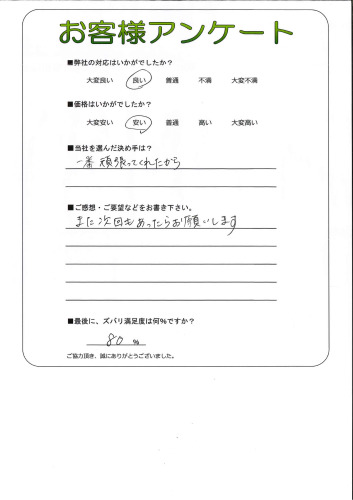 お客様アンケート
■弊社の対応はいかがでしたか？
大変良い 良い 普通 不満 大変不満
■価格はいかがでしたか？
大変安い 安い 普通 高い 大変高い
■当社を選んだ決め手は？
一番頑張ってくれたから
■ご感想・ご要望などをお書き下さい。
また次回もあったらお願いします
■最後に、ズバリ満足度は何%ですか？
80 %
ご協力頂き、誠にありがとうございました。